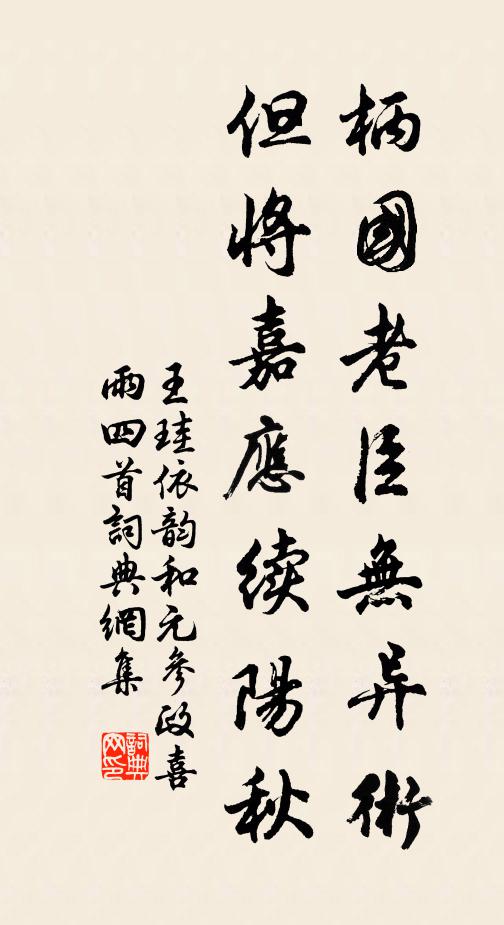 柄國老臣無异術
但將嘉應续陽秋
王珪依韵和元參政喜
雨四首詞典網集
詞典网印